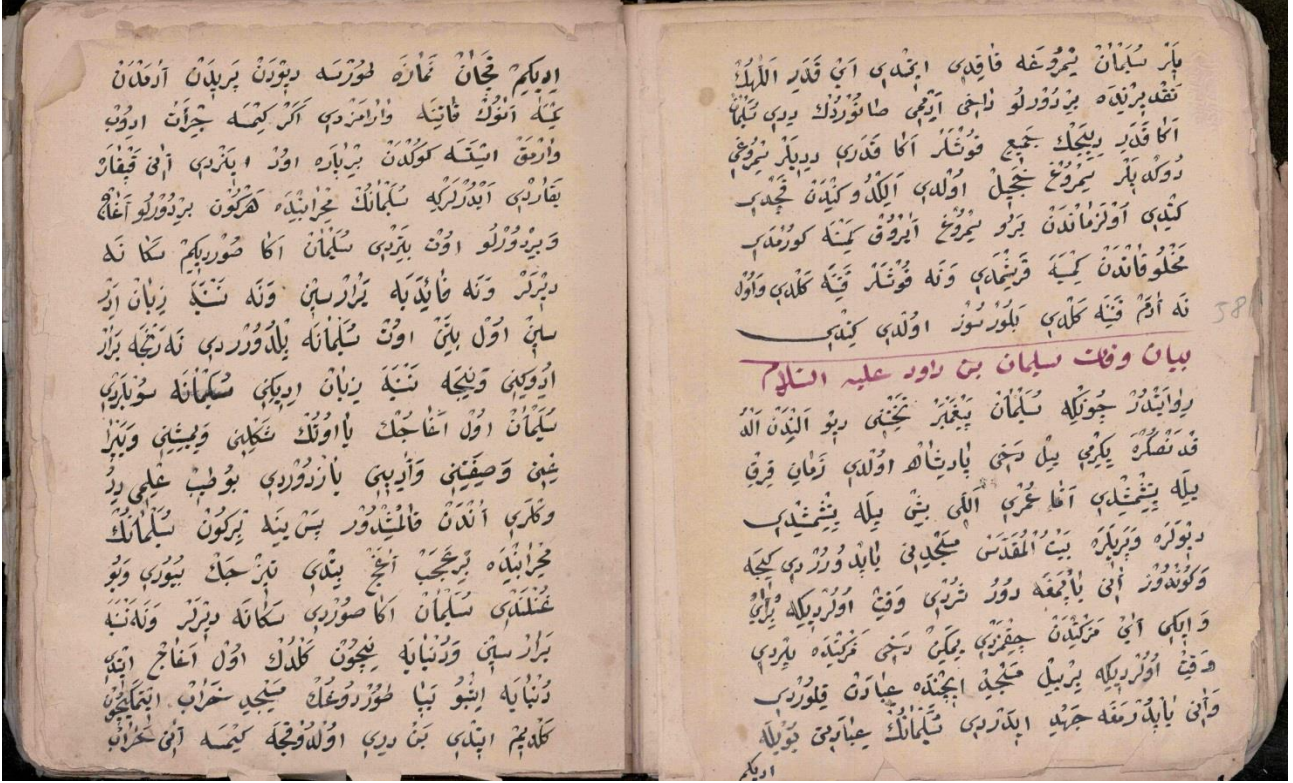 پلر سلیمان یمروغه قاقدی ایتمدی ای قدر اللهڭ
تقدیرنده بر دورلو داخی ایدمی صانوردڭ دیدی سلیمان
اكا قدر دییجك جمیع قوشلر اكا قدری دیدیلر یمروغی
دوكدیلر یمروغ خجیل اولدی الكلدوكندن قچدی
كتدی اولزماندن برو یمروغ ایروق كمسه كورمدی
مخلوقاتدن كمسیه قرشمدی ونه قوشلر قتنه كلدی واول
نه ادم قتنه كلدی بلورسوز اولدی كتدی
بیان وفات سلیمان بن داود علیه السلام
روایتدر چونكه سلیمان پیغمبر تختنی دیو الندن الد
قدنصكره یكرمی ییل دخی پادشاه اولدی زمان قرق
ییله یتشمشدی اما عمری اللی بش ییله یتشمشدی
دیولره وپریلره بیت المقدس مسجدینی یاپدوردی كیجه
وكوندوز انی یاپمغه دورشردی وقت اولردیكه بر ای
وایكی ای مركتدن چقمزدی یمكین دخی مركتده یردی
وقت اولردیكه بر ییل مسجد ایچنده عبادت قلوردی
وانی یاپدرمغه جهد ایدردی سلیمانڭ عبادتی بویله
ایدیكم
ایدیكم قچان نمازه طورسه دیودن پریدن آدمدن
كمسه آنوڭ قاتنه وارامزدی اكر كیمسه جرات ایدوب
وارمق ایتسه كوكدن بر پاره اود اینردی آنی
یقاردی ایدرلركه سلیمانڭ محرابنده هركون بر دورلو آغاج
وبیر دورلو اوت بتردی سلیمان اكا صورردیكم سكا نه
دیرلر ونه فائدیه یرارسین ونه نسنیه زیان ایدر
سین اول بیتن اوت سلیمانه بلدورردی نه رنجه یرار
ایدوكنی ونیجه نسنیه زیان ایدیكنی سلیمانه سویلردی
سلیمان اول آغاجڭ یا اوتڭ شكلنی ویمشنی ویپرا
غینی وصفتنی وآدینی یازدوردی بو طب علمی دید
وكلری آندن قالمشدور پس ینه بر كون سلیمانڭ
محرابنده بر عجب آغاج بتدی تیزجك بیودی وبو
غنلندی سلیمان اكا صوردی سكانه دیرلر ونه نسنیه
یرارسین ودنیایه نیچون كلدڭ اول آغاج ایتدی
دنیایه اشبو بنا طوردوغڭ مسجد خراب ایتمكیچون
كلدیم ایتدی بن دیری اولدوقچه كیمسه آنی خراب